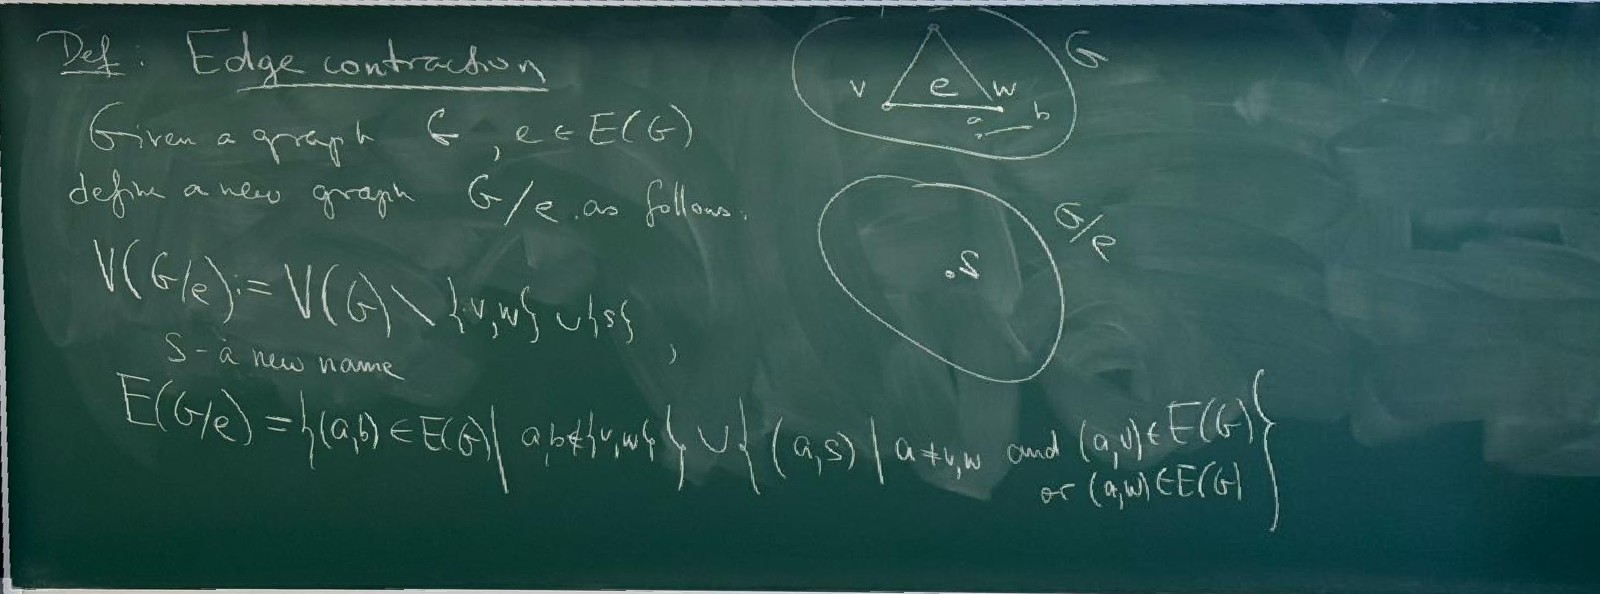 Def: Edge contraction
Given a graph G, e ∈ E(G)
define a new graph G/e as follows.
V(G/e) := V(G) \ {v,w} ∪ {s},
s - a new name
E(G/e) = {(a,b) ∈ E(G) | a,b ∉ {v,w}} ∪ {(a,s) | a ≠ v,w and (a,v) ∈ E(G)
or (a,w) ∈ E(G)}
G
v e w
a b
G/e
s